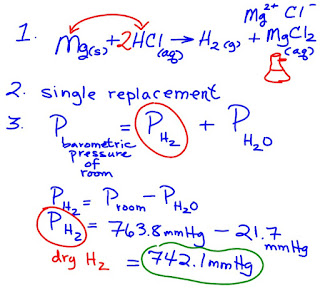 Mg²⁺ Cl⁻
1. Mg(s) + 2HCl(aq) → H₂(g) + MgCl₂(aq)
2. single replacement
3. P barometric pressure of room = P H₂ + P H₂O
P H₂ = P room − P H₂O
P H₂ = 763.8 mmHg − 21.7 mmHg
dry H₂ = 742.1 mmHg